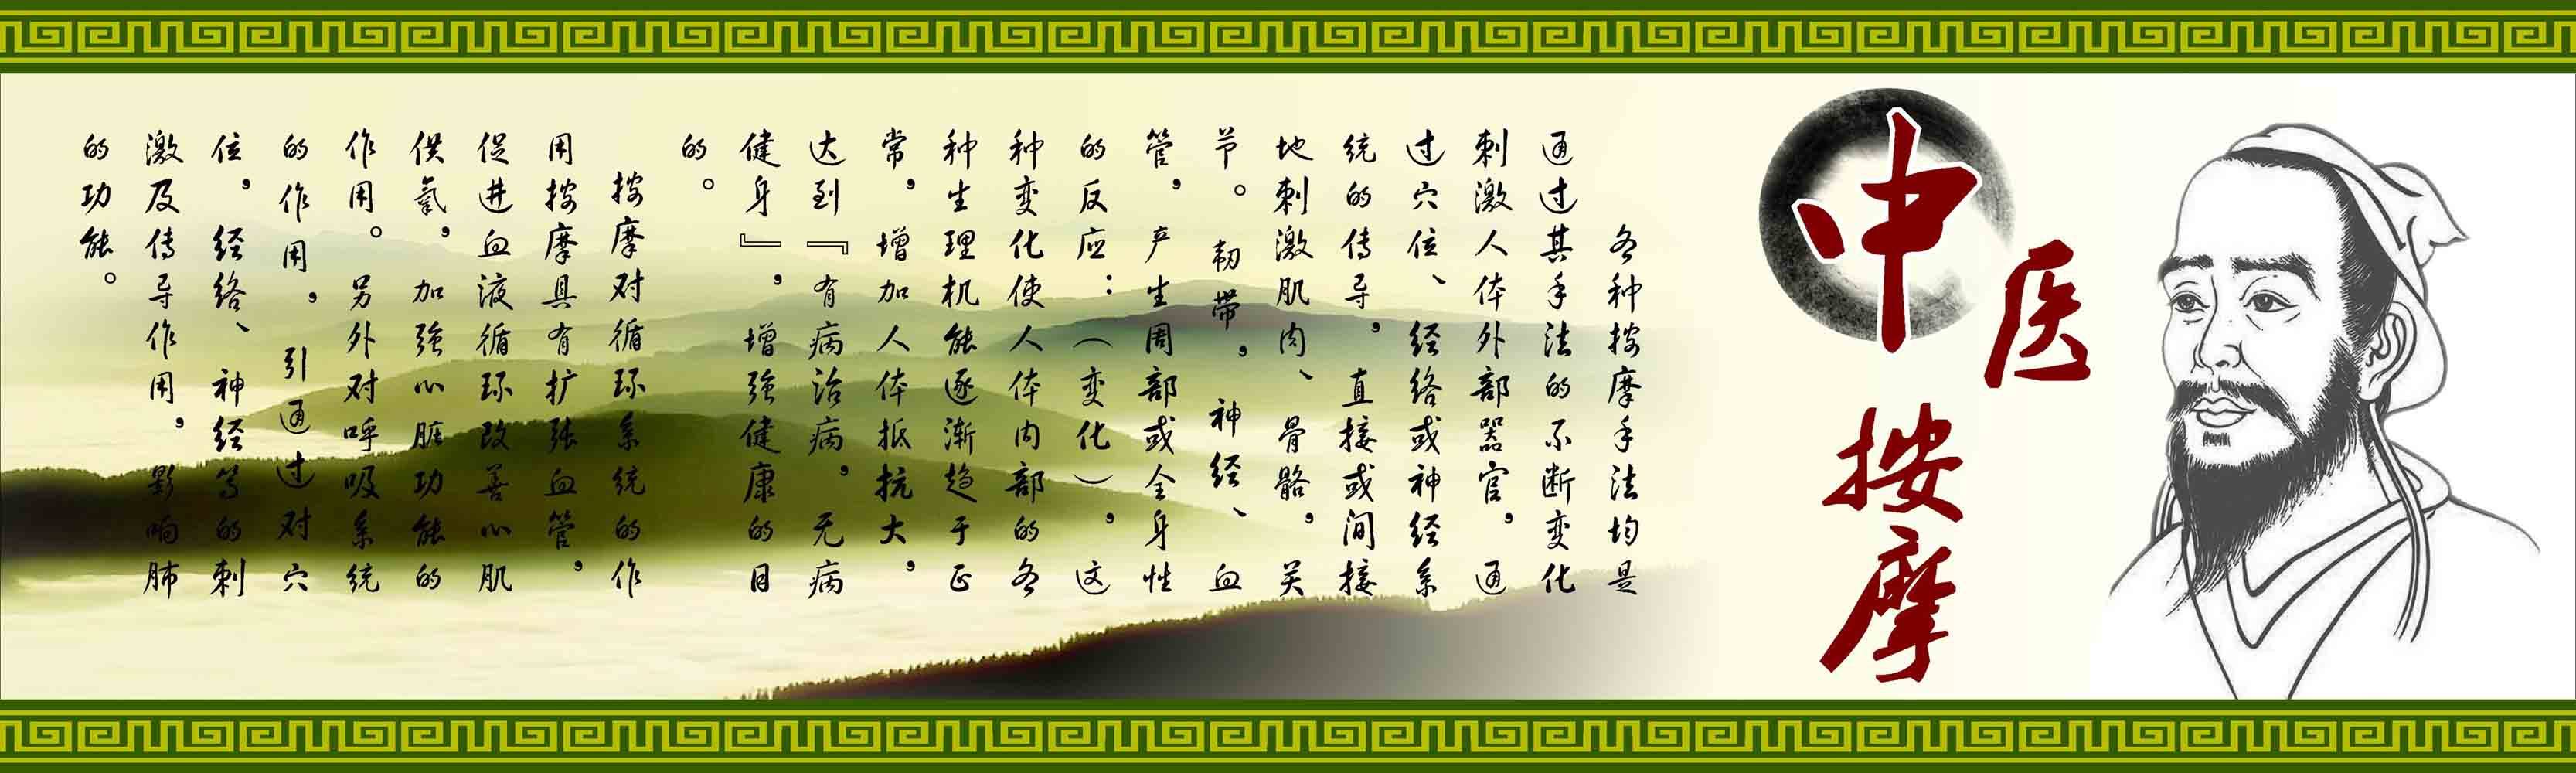 中医
按摩
各种按摩手法均是
通过其手法的不断变化
刺激人体外部器官，通
过穴位、经络或神经系
统的传导，直接或间接
地刺激肌肉、骨骼，关
节。韧带，神经、血
管，产生周部或全身性
的反应：（变化），这
种变化使人体内部的各
种生理机能逐渐趋于正
常，增加人体抵抗大，
达到『有病治病，无病
健身』，增强健康的目
的。
按摩对循环系统的作
用按摩具有扩张血管，
促进血液循环改善心肌
供氧，加强心脏功能的
作用。另外对呼吸系统
的作用，引通过对穴
位，经络、神经等的刺
激及传导作用，影响肺
的功能。